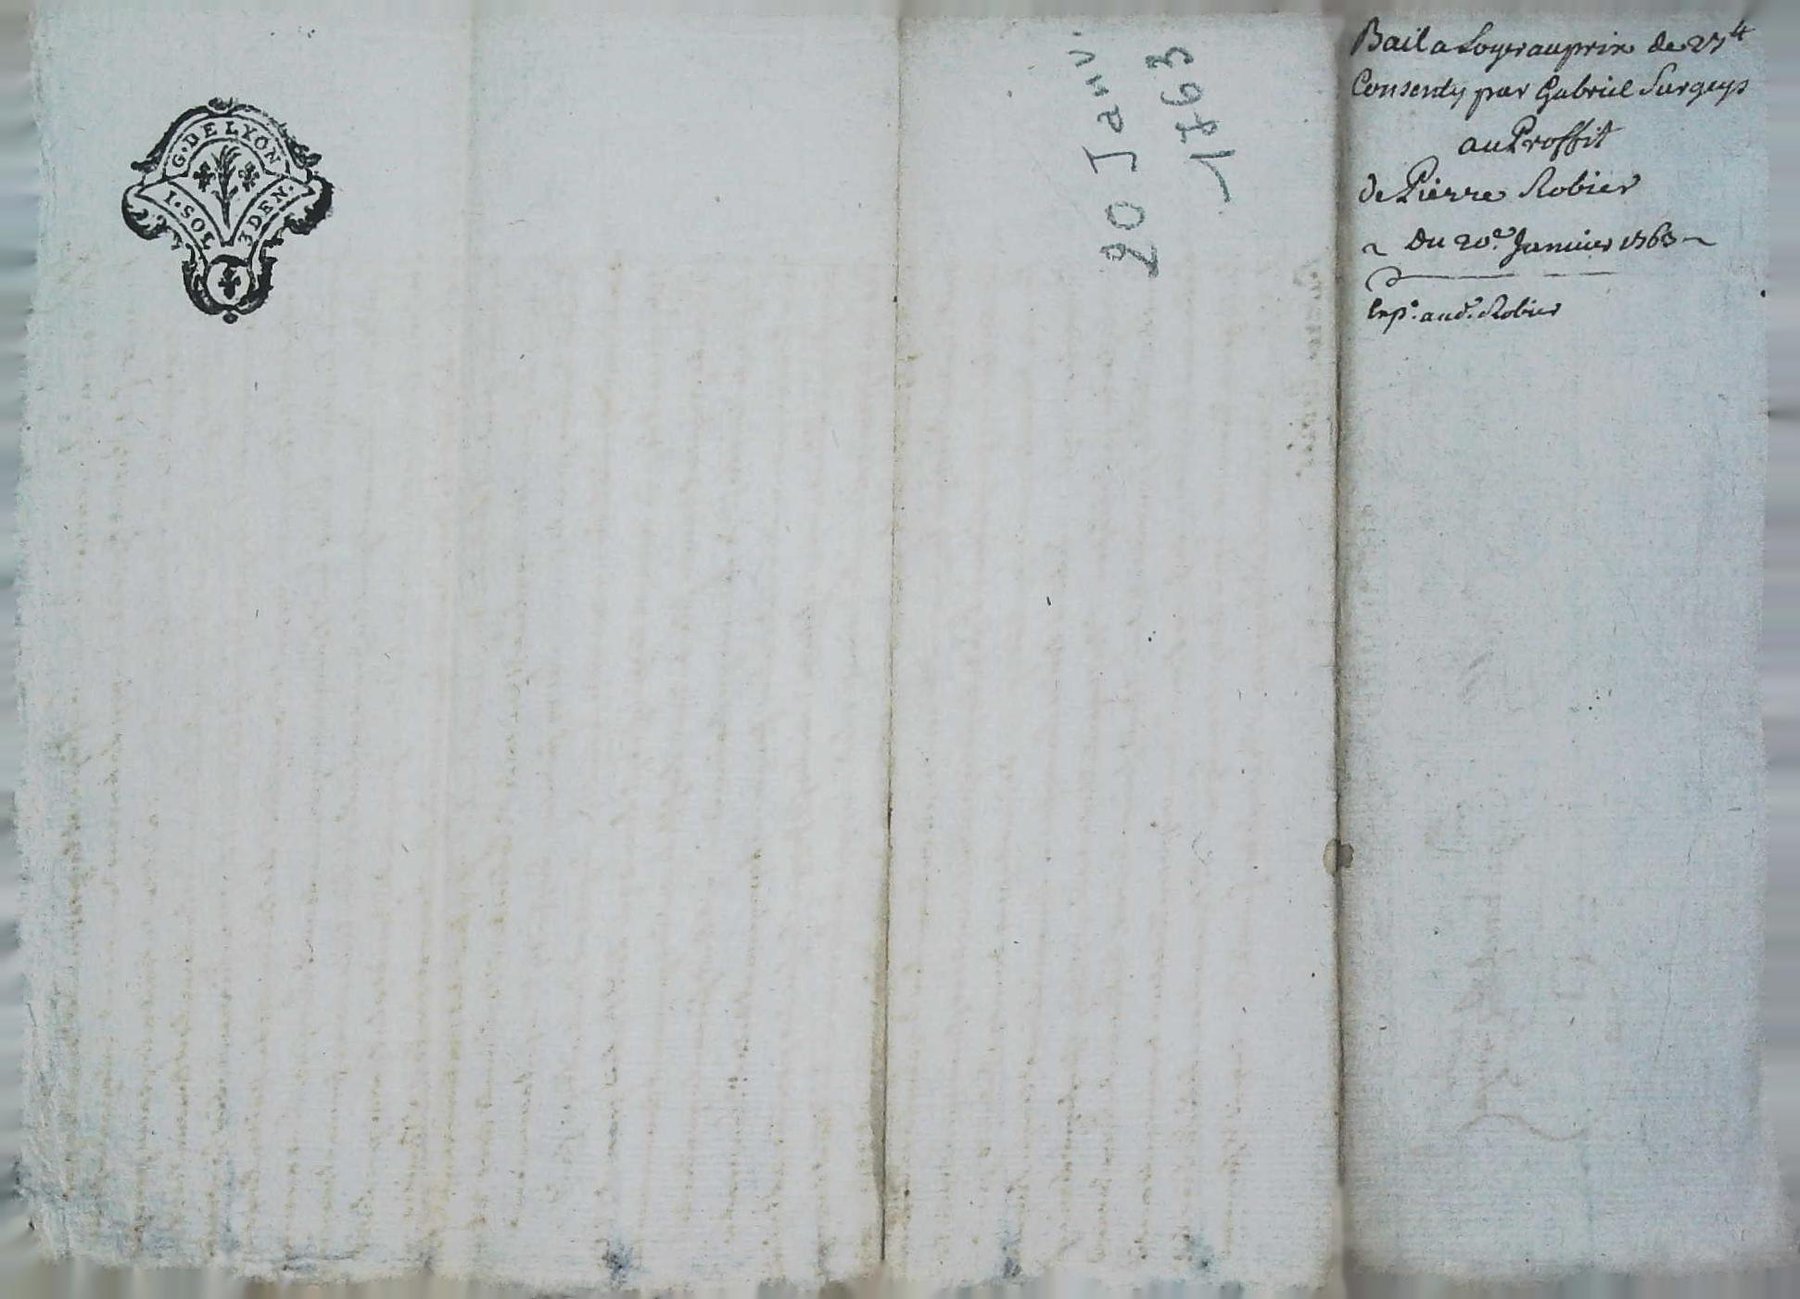 G. DE LYON
I. SOL 3 DEN.
20 Janv.
1763
Bail a Loyer au prix de 27ᵗᵗ
Consenty par Gabriel
au Proffit
de Pierre Robier
~ Du 20.e Janvier 1763 ~
Exp. aud. Robier